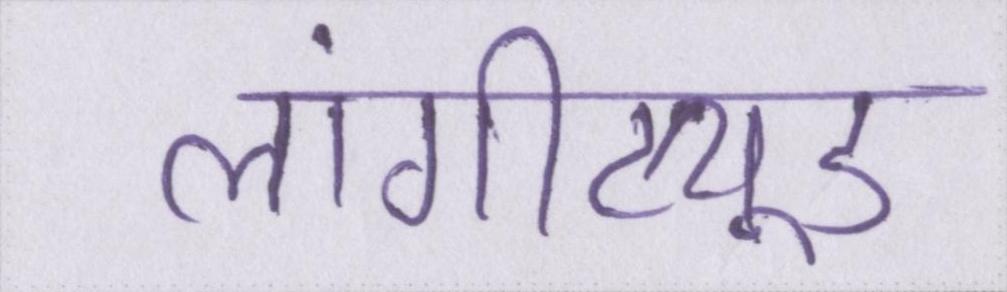 लांगीट्यूड